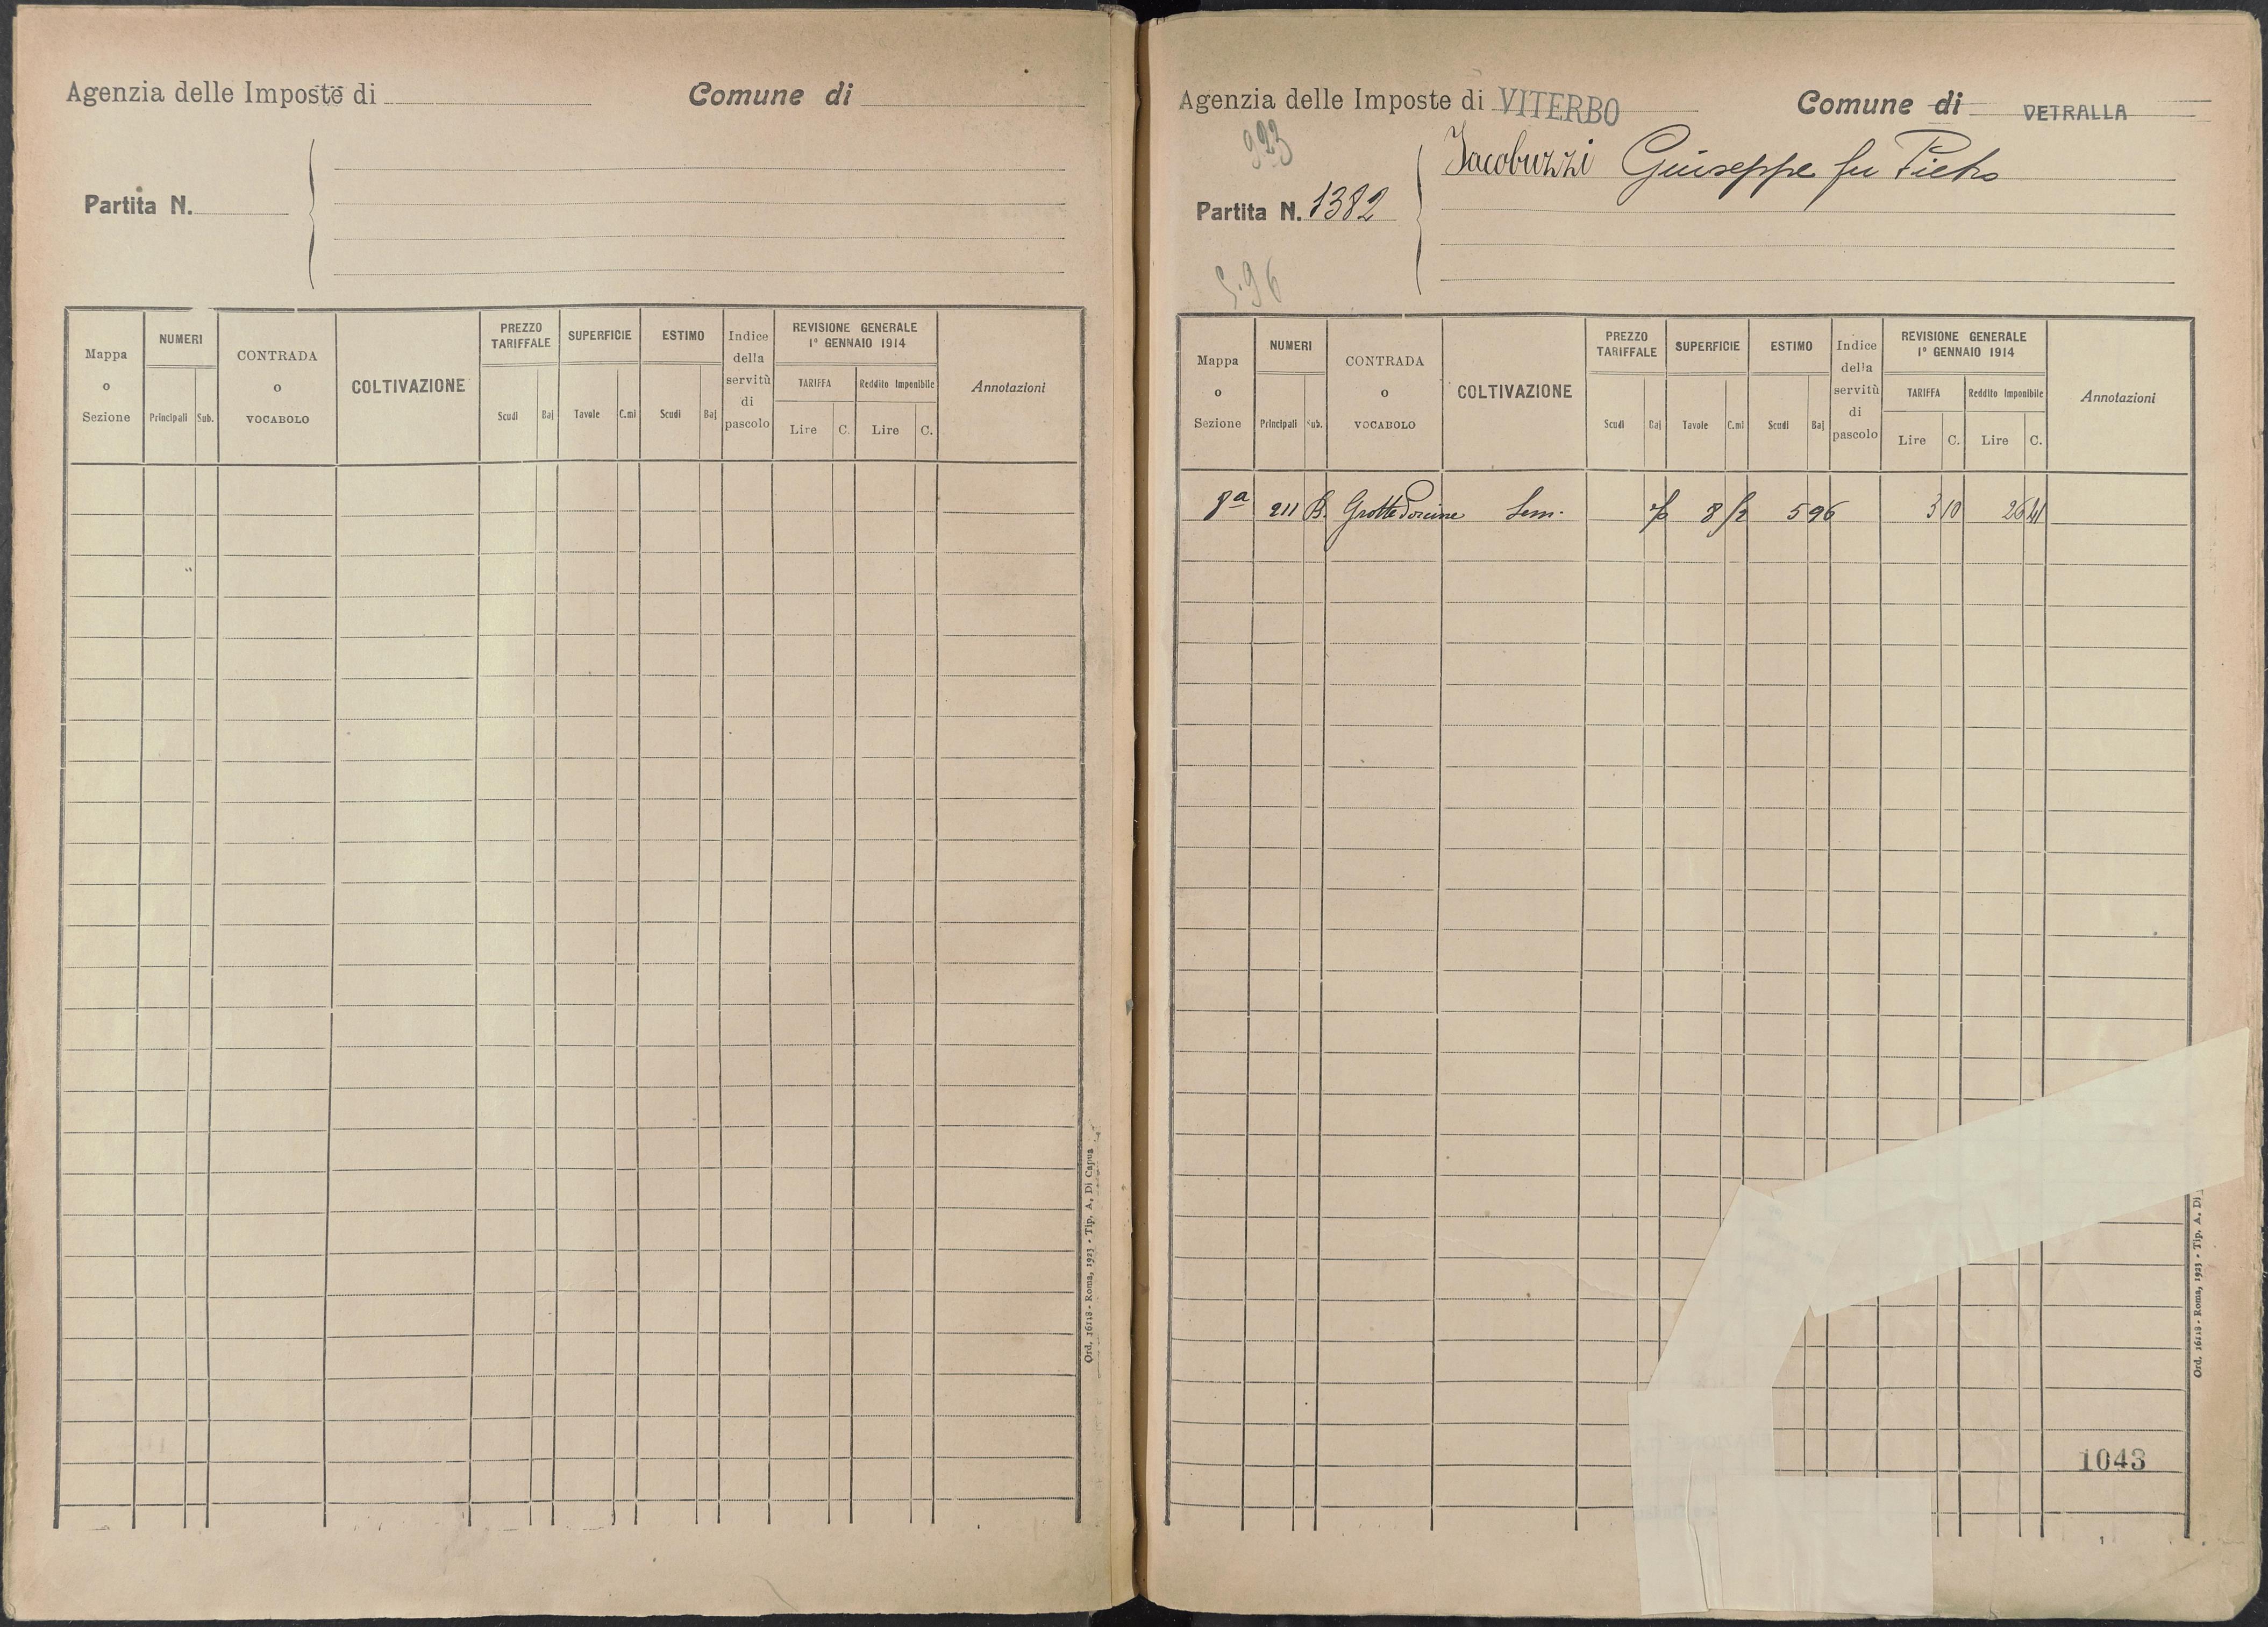 Agenzia delle Imposte di Comune di
Partita N.
Mappa o Sezione NUMERI Principali Sub. CONTRADA o VOCABOLO COLTIVAZIONE PREZZO TARIFFALE Scudi Baj SUPERFICIE Tavole C.mi ESTIMO Scudi Baj Indice della servitù di pascolo REVISIONE GENERALE 1° GENNAIO 1914 TARIFFA Lire C. Reddito Imponibile Lire C. Annotazioni
Ord. 16118 - Roma, 1923 - Tip. A. Di Capua
Agenzia delle Imposte di VITERBO Comune di VETRALLA
923
Jacobuzzi Giuseppe fu Pietro
Partita N. 1382
5.96
Mappa o Sezione NUMERI Principali Sub. CONTRADA o VOCABOLO COLTIVAZIONE PREZZO TARIFFALE Scudi Baj SUPERFICIE Tavole C.mi ESTIMO Scudi Baj Indice della servitù di pascolo REVISIONE GENERALE 1° GENNAIO 1914 TARIFFA Lire C. Reddito Imponibile Lire C. Annotazioni
8ª 211 B. Grotte Porcine Sem. 8 52 5 96 3 10 26 41
Ord. 16118 - Roma, 1923 - Tip. A. Di
1043